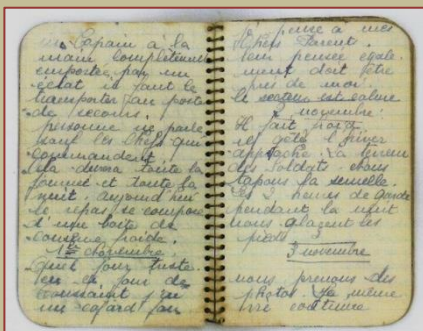 un Copain à la
main complètement
emportée par un
éclat il faut le
transporter au poste
de secours.
personne ne parle
sauf les Chefs qui
commandent
cela durera toute la
journée et toute la
nuit. aujourd'hui
le repas se compose
d'une boîte de
conserve froide.
1er Novembre.
quel jour triste
c'est le jour de
toussaint
un regard
pense à mes
Chers Parent.
leur pensée égale-
ment doit être
près de moi.
le secteur est calme
2 novembre
Il fait froid
il gèle l'hiver
approche. La terreur
des Soldats. nous
tapons la semelle.
les 3 heures de garde
pendant la nuit
nous glaçent les
pieds
3 novembre
nous prenons des
photos. La même
vie continue